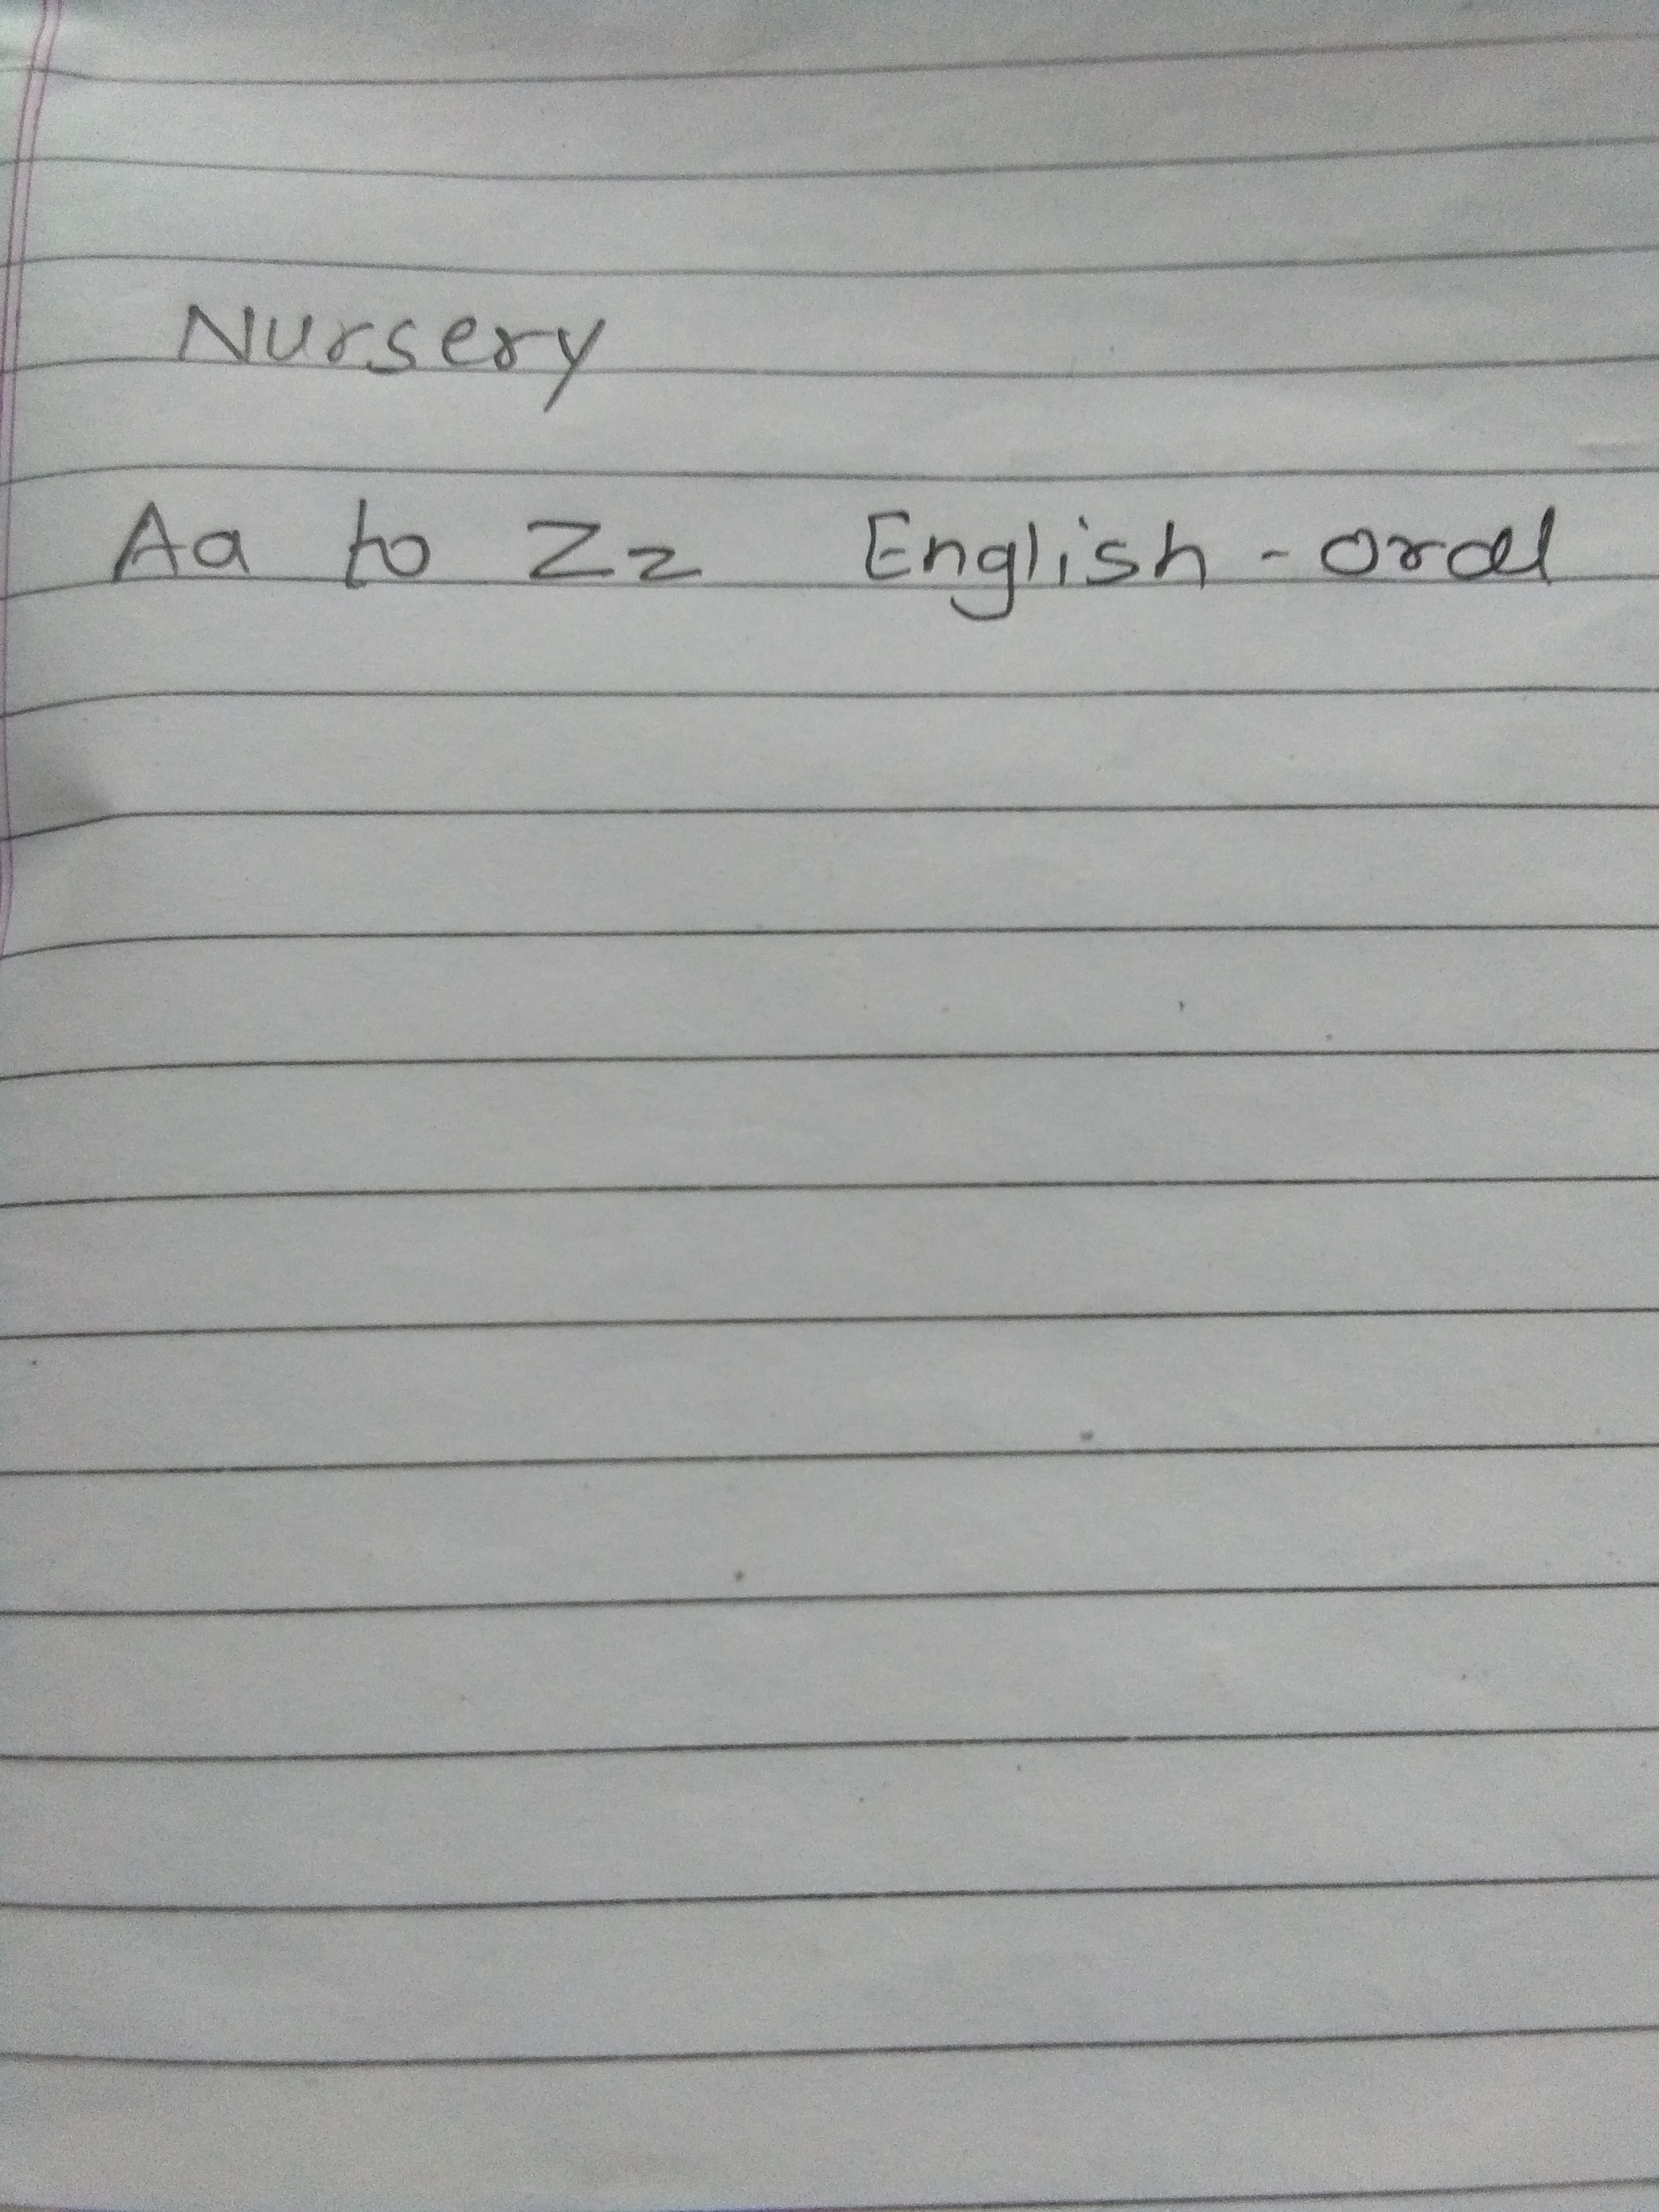 Nursery
Aa to Zz English - oral